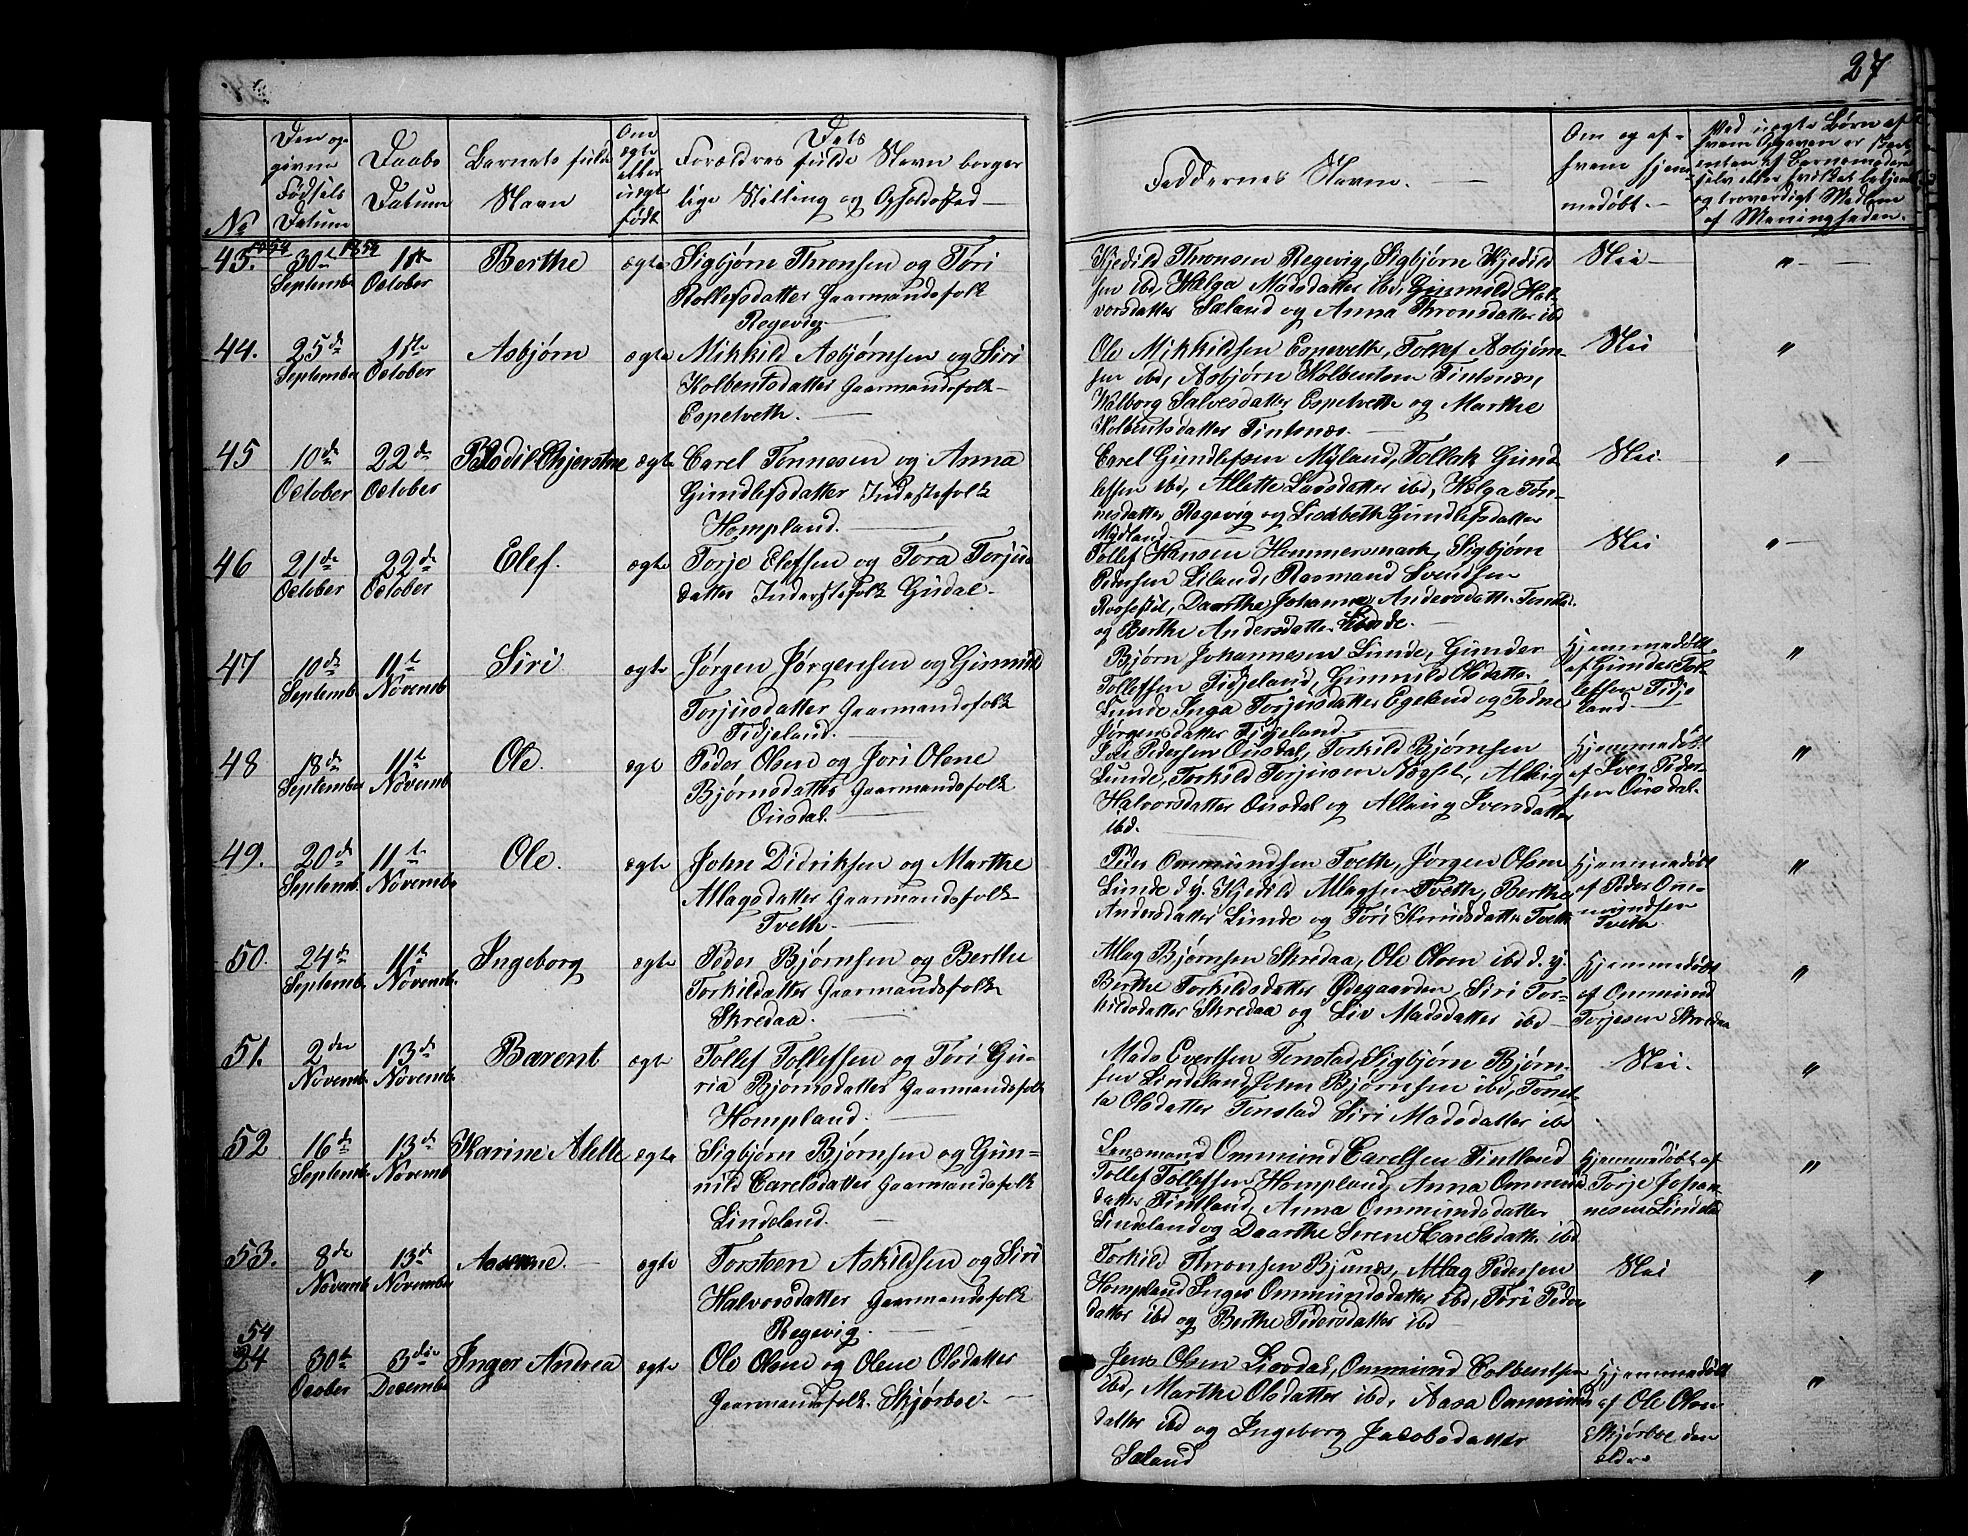 27
No
Den op-
givne
Fødsels
Datum
Daabs
Datum
Barnets fulde
Navn
Om
ægte
eller
uægte
født
Dets
Forældres fulde Navn borger
lige Stilling og Opholdssted
Faddernes Navne.
Om og af
hvem hjem-
medøbt.
Ved uægte Børn af
hvem Opgaven er
selv eller
og troværdigt Medlem
af Menigheden.
1854 1854
43. 30te September 1ste October Berthe ægte
Sigbjørn Thronsen og Tori
Rollefsdatter Gaarmandsfolk
Regevig
Kjedild Thronsen Regevig, Sigbjørn Kjedild
sen ibd, Helga Madsdatter ibd, Gunnild Hal-
vorsdatter Sæland og Anna Thronsdatter ibd
Nei "
44. 25de September 1ste October Asbjørn ægte
Mikkild Asbjørnsen og Siri
Kolbentsdatter Gaarmandsfolk
Espetveth.
Ole Mikkildsen Espetveth, Tollef Asbjørn-
sen ibd, Asbjørn Kolbentsen Tintsnæs,
Walborg Salvesdatter Espetveth og Marthe
Kolbentsdatter Tintsnæs.
Nei "
45 10de October 22de October Bodil Gjerstine ægte
Carel Tønnesen og Anna
Gundlefsdatter Inderstefolk
Hompland.
Carel Gundlefsen Mydland, Tollak Gund
lefsen ibd, Allette Larsdatter ibd, Helga Tøn-
nesdatter Regevig og Lisabeth Gundlefsdatter
Mydland
Nei "
46 21de October 22de October Elef. ægte
Torje Elefsen og Tora Torjus
datter Inderstefolk Gudal.
Tollef Hansen Hommersmark, Sigbjørn
Pedersen Eiland, Rasmund Svendsen
Daarthe Johanne Andersdatter
og Berthe Andersdatter Lunde.
Nei "
47 10de Septemb. 11te Novemb. Siri. ægte
Jørgen Jørgensen og Gunnild
Torjusdatter Gaarmandsfolk
Tidjeland.
Bjørn Johannesen Lunde, Gunder
Tollefsen Tidjeland, Gunnild Olsdatter
Lunde Inga Torjusdatter Egeland og Todne
Jørgensdatter Tidjeland.
Hjemmedøbt
af Gunder Tol-
lefsen Tidje
land. "
48 18de September 11te Novemb Ole. egte
Peder Olsen og Jori Olene
Bjørnsdatter Gaarmandsfolk
Ousdal.
Iver Pedersen Ousdal, Torkild Bjørnsen
Lunde, Torkild Torjusen
Halvorsdatter Ousdal og Allaug Iversdatter
ibd.
Hjemmedøbt
af Iver Peder-
sen Ousdal. "
49. 20de Septemb. 11te Novemb. Ole. egte
John Didriksen og Marthe
Atlagsdatter Gaarmandsfolk
Tveth.
Peder Ommundsen Tveth, Jørgen Olsen
Lunde d.y. Kjedild Atlagsen Tveth, Berthe
Andersdatter Lunde og Tori Knudsdatter Tveth
Hjemmedøbt
af Peder Om-
mundsen
Tveth "
50. 24de Septemb. 11te Novemb. Ingeborg ægte
Peder Bjørnsen og Berthe
Torkildatter Gaarmandsfolk
Skredaa.
Atlag Bjørnsen Skredaa, Ole Olsen ibd d. y.
Berthe Torkildsdatter Ødegaarden, Siri Tor-
kildsdatter Skredaa og Liv Madsdatter ibd
Hjemmedøbt
af Ommund
Torjesen Skredaa "
51. 2den Novemb. 13de Novemb. Barent ægte
Tollef Tollefsen og Tori Gu-
ria Bjørnsdatter Gaarmandsfolk
Hompland.
Mads Evertsen Tenstad, Sigbjørn Bjørn-
sen Lindeland, John Bjørnsen ibd,
Olsdatter Tenstad Siri Madsdatter ibd
Nei. "
52 16de Septemb. 13de Novemb Karine Alette ægte
Sigbjørn Bjørnsen og Gun-
nild Carelsdatter Gaarmandsfolk
Lindeland.
Lensmand Ommund Carelsen Tintland
Tollef Tollefsen Hompland, Anna Ommund
datter Tintland, Anna Ommundsdatter
Lindeland og Daarthe Serene Carelsdatter ibd
Hjemmedøbt af
Torje Johan-
nesen Lindeland "
53. 8de Novemb 13de November ægte
Torsten Askildsen og Siri
Halvorsdatter Gaarmandsfolk
Regevig.
Torkild Thronsen Bjunæs, Atlag Pedersen
Hompland Inger Ommundsdatter ibd, Tori Peder
datter ibd og Berthe Pedersdatter ibd
Nei "
54
24 30te Ocober 3die Decembe Inger Andrea ægte
Ole Olsen og Olene Olsdatter
Gaarmandsfolk Skjørboe.
Jens Olsen Liovdal, Ommund Colbentsen
ibd, Marthe Olsdatter ibd, Aasa Ommund
datter ibd og Ingeborg Jacobsdatter
Sæland
Hjemmedøbt
af Ole Olsen
Skjørboe den
eldre "